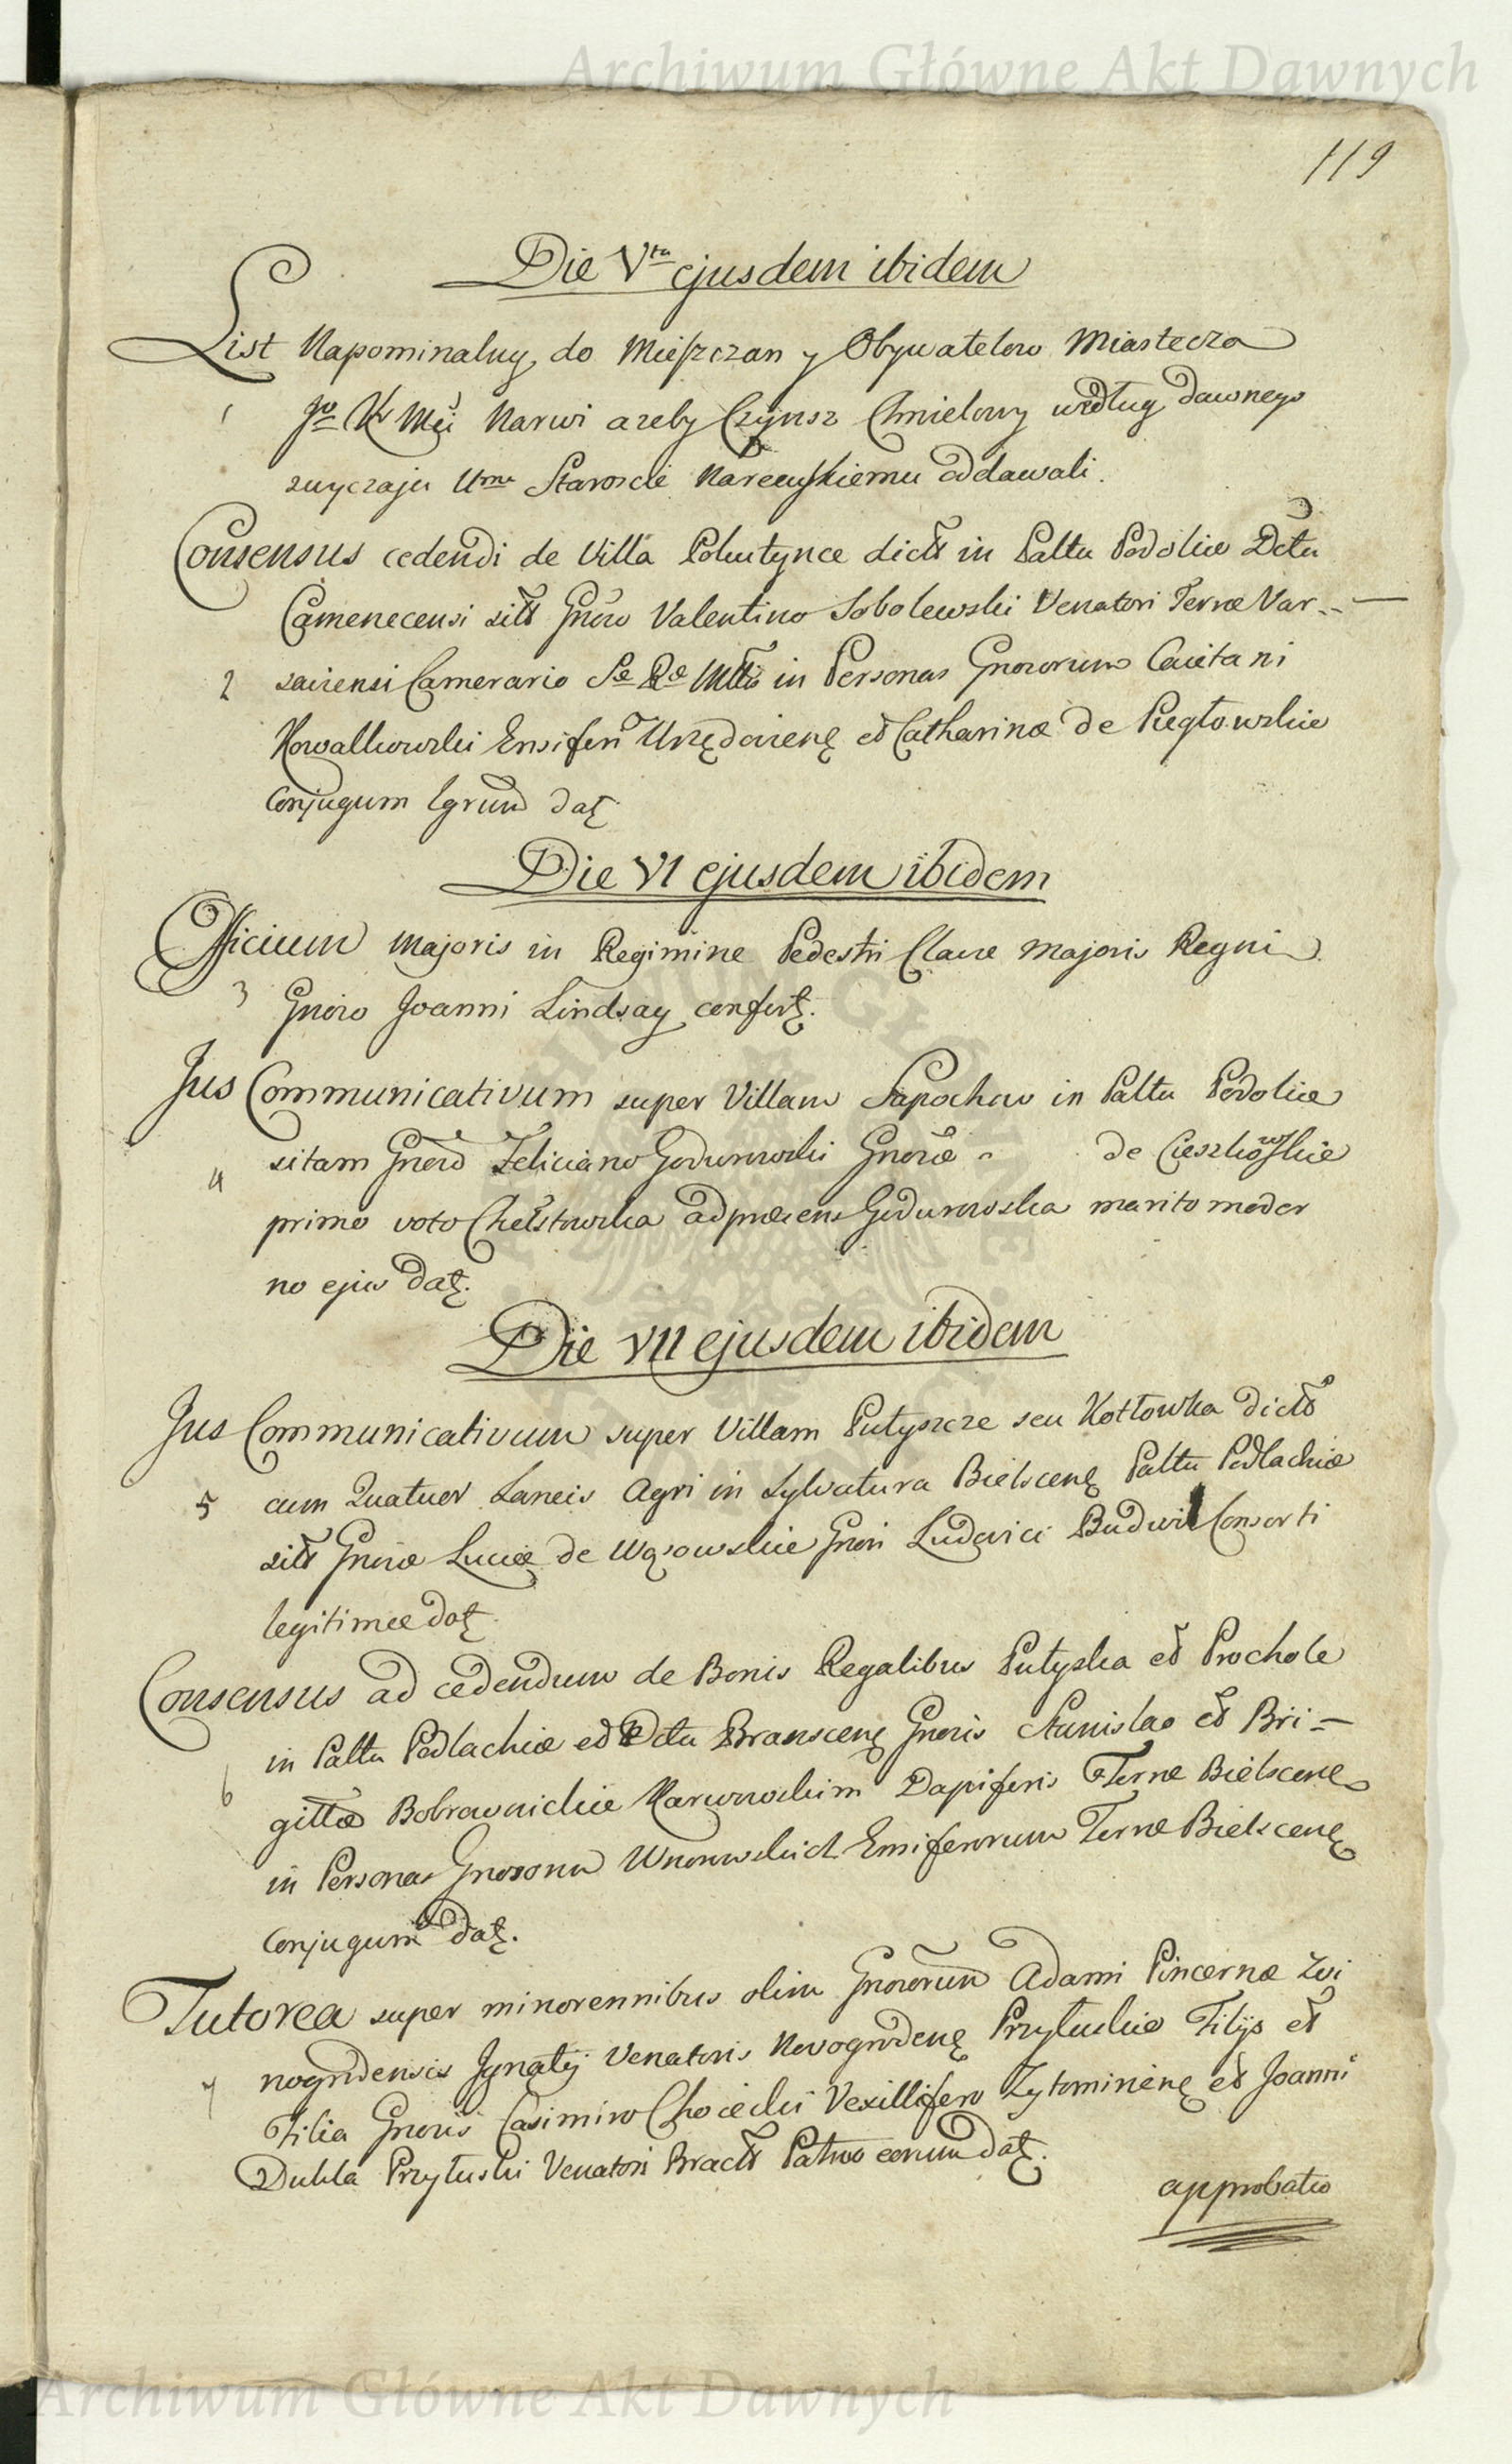 Archiwum Główne Akt Dawnych
119
Die Vta ejusdem ibidem
List Napominalny do Mieszczan y Obywatelow Miastecza
1 Jo K Mći Narwi azeby Czynsz Chmielowy według dawnego
zwyczaju Umu Staroscie Narewskiemu oddawali.
Consensus cedendi de Villa Polutynce dicta in Pallu Podoliæ Dctu
Camenecensi sita Gnoso Valentino Sobolewski Venatori Terræ Var-
2 saviensi Camerario Sæ Ræ Mttis in Personas Gnosorum Caietani
Kowalkowski Ensiferi Urzędovienę et Catharinæ de Piegłowskie
Conjugum dat
Die VI ejusdem ibidem
Officium Majoris in Regimine Pedestri Clavæ Majoris Regni
3 Gnoso Joanni Lindsay confert.
Jus Communicativum super Villam Sapochow in Pallu Podoliæ
4 sitam Gnoso Feliciano Godurowski Gnosæ de Cieszkowskie
primo voto Chełstowska ad præsens Godurowska marito moder
no ejus dat.
Die VII ejusdem ibidem
Jus Communicativum super Villam Putyszcze seu Kotłowka dicta
5 cum Quatuor Laneis Agri in Sylvatura Bielscenę Pallu Podlachiæ
sita Gnosæ Luciæ de Wąsowskie Gnosi Ludovici Budwil Consorti
legitimæ dat.
Consensus ad cedendum de Bonis Regalibus Putyska et Prochole
in Pallu Podlachiæ et Dctu Branscenę Gnosis Stanislao et Bri-
6 gittæ Bobrownickie Karwowskim Dapiferis Terræ Bielscene
in Personas Gnosorum Wnorowskich Ensiferorum Terræ Bielscenę
Conjugum dat.
Tutorea super minorennibus olim Gnosorum Adami Pincernæ Zvi
7 nogrodensis Ignatij Venatoris Novogrodenę Przyłuskie Filijs et
Filia Gnosis Casimiro Chojecki Vexillifero Zytomirienę et Joanni
Dukla Przyłuski Venatori Bracł Patruo eorum dat.
approbatio
Archiwum Główne Akt Dawnych